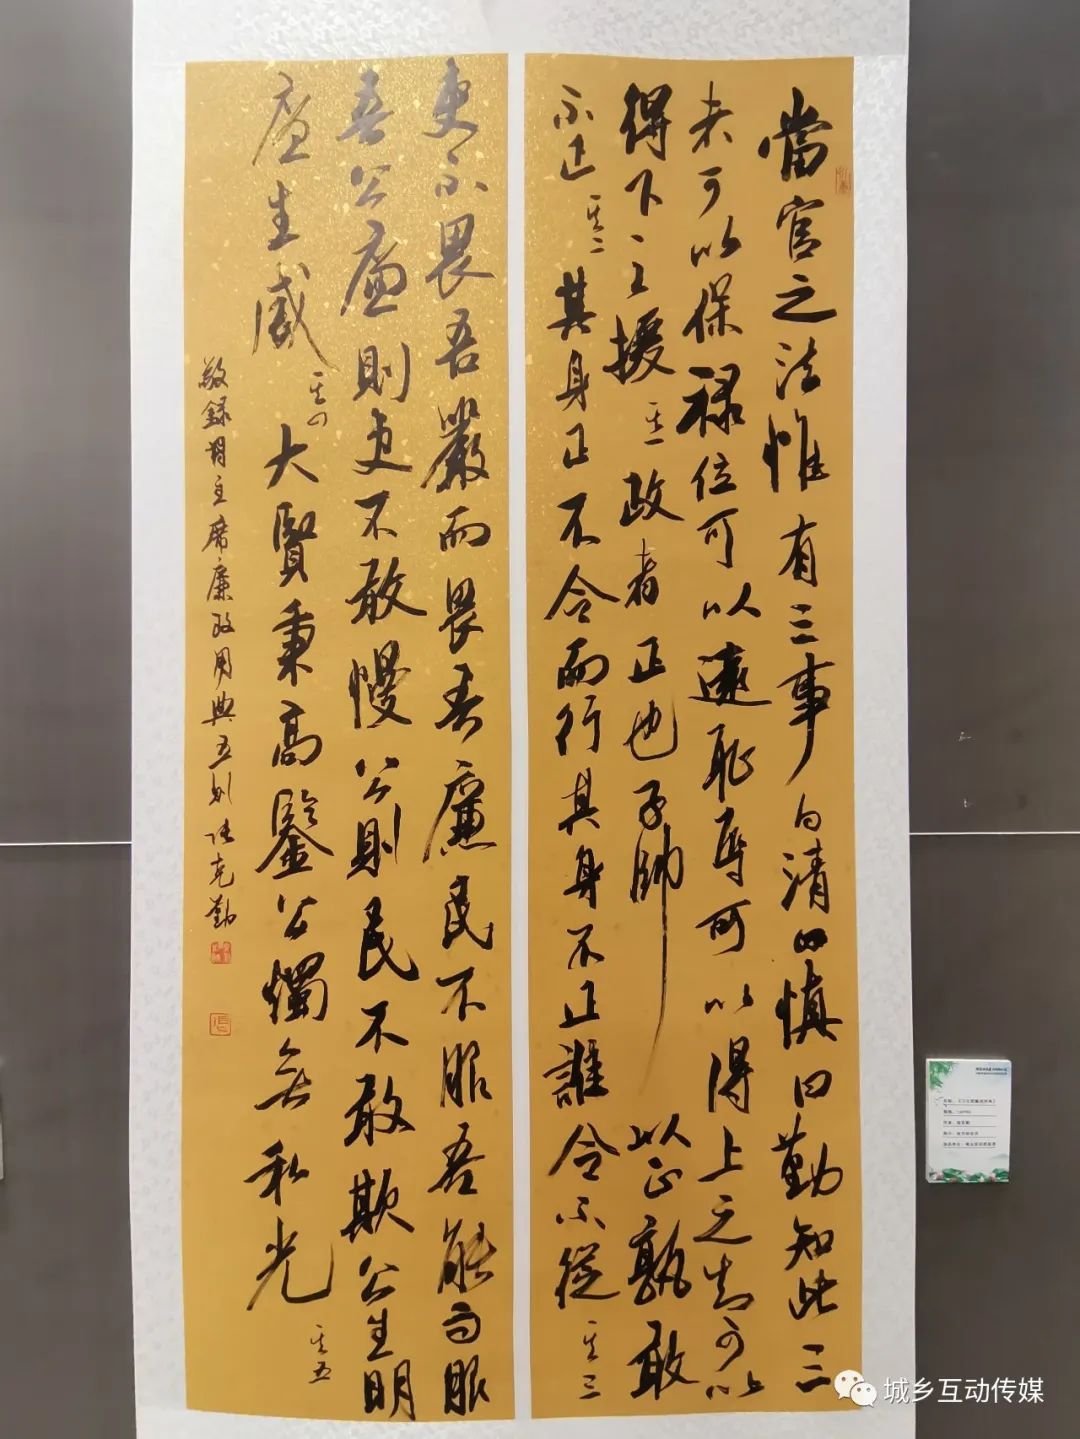 當官之法惟有三事曰清曰慎曰勤知此三
者可以保祿位可以遠恥辱可以得上之知可以
得下之援其一政者正也子帥以正孰敢
不正其二其身正不令而行其身不正誰令不從其三
吏不畏吾嚴而畏吾廉民不服吾能而服
吾公廉則吏不敢慢公則民不敢欺公生明
廉生威其四大賢秉高鑒公燭無私光其五
敬錄胡主席廉政用典五則張克勤
城乡互动传媒